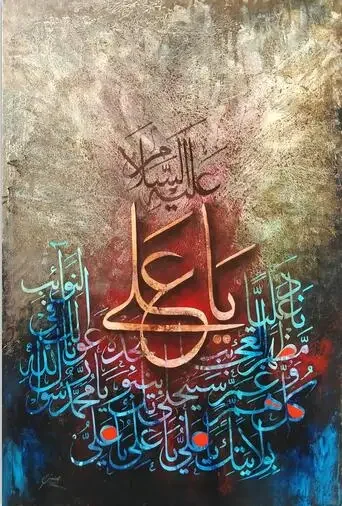 عليه السلام
يا علي
ناد علياً
مظهر العجائب تجده عونا لك في النوائب
كل هم و غم سينجلي بنبوتك يا محمد رسول الله
بولايتك يا علي يا علي يا علي